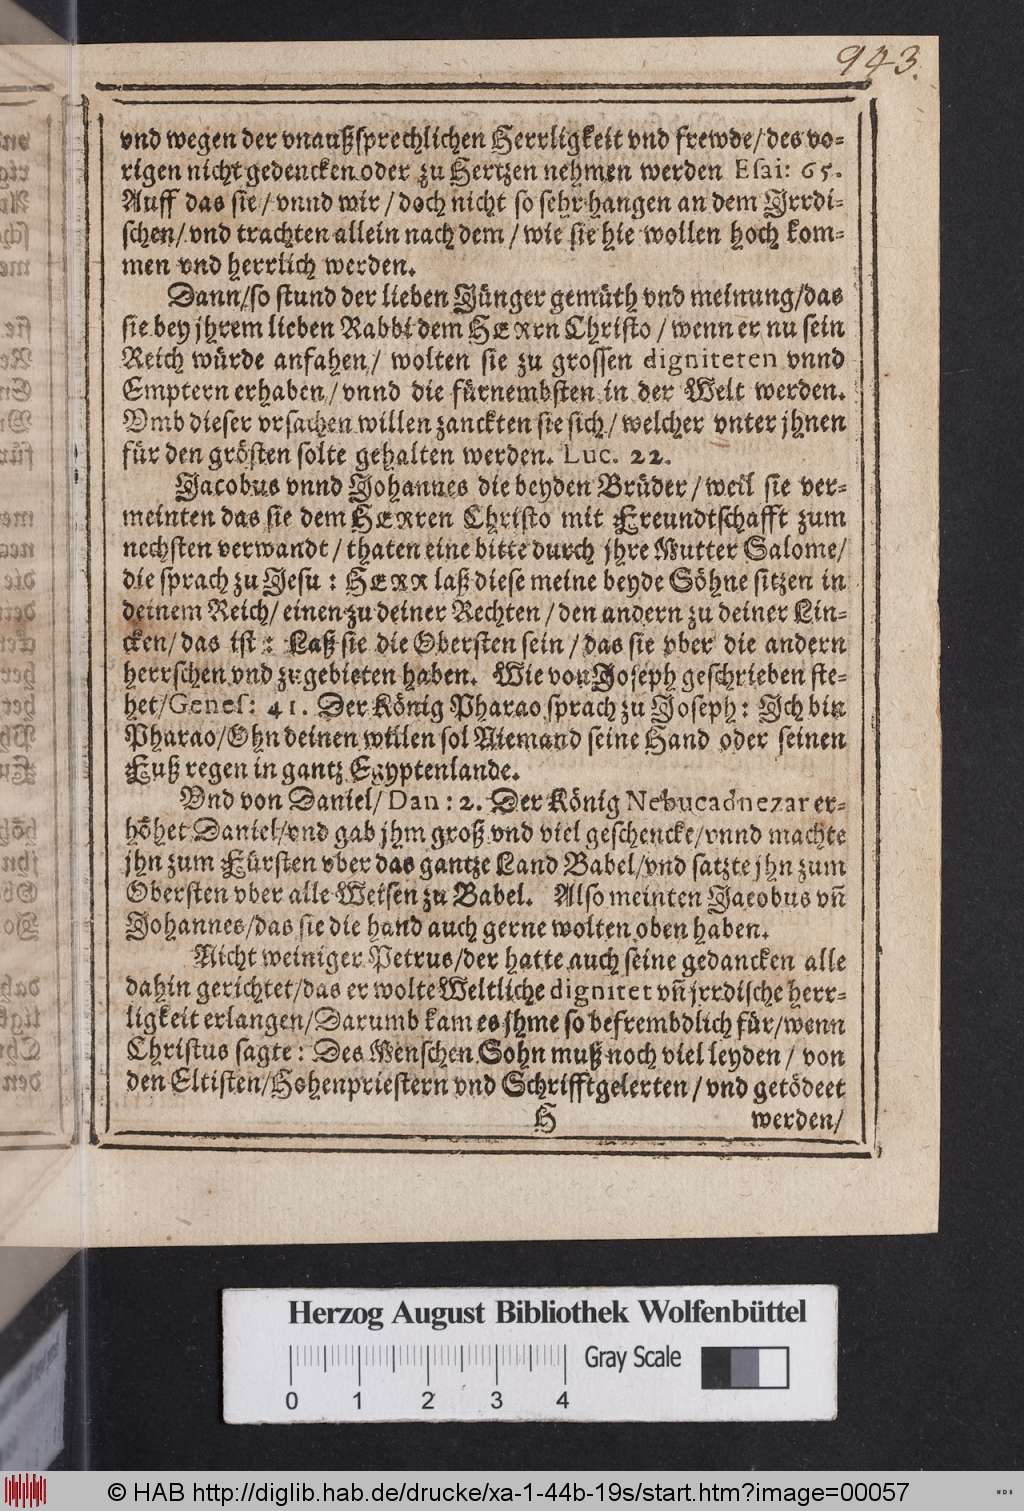 943.
vnd wegen der vnaußsprechlichen Herrligkeit vnd frewde/ des vo-
rigen nicht gedencken oder zu Hertzen nehmen werden Esai: 65.
Auff das sie/ vnnd wir/ doch nicht so sehr hangen an dem Jrrdi-
schen/ vnd trachten allein nach dem/ wie sie hie wollen hoch kom-
men vnd herrlich werden.
Dann/so stund der lieben Jünger gemüth vnd meinung/das
sie bey jhrem lieben Rabbi dem HERrn Christo/ wenn er nu sein
Reich würde anfahen/ wolten sie zu grossen digniteten vnnd
Emptern erhaben/ vnnd die fürnembsten in der Welt werden.
Vmb dieser vrsachen willen zanckten sie sich/ welcher vnter jhnen
für den grösten solte gehalten werden. Luc. 22.
Jacobus vnnd Johannes die beyden Brüder/ weil sie ver-
meinten das sie dem HERren Christo mit Freundtschafft zum
nechsten verwandt/ thaten eine bitte durch jhre Mutter Salome/
die sprach zu Jesu: HERR laß diese meine beyde Söhne sitzen in
deinem Reich/ einen zu deiner Rechten/ den andern zu deiner Lin-
cken/ das ist: Laß sie die Obersten sein/ das sie vber die andern
herrschen vnd zugebieten haben. Wie von Joseph geschrieben ste-
het/Genes: 41. Der König Pharao sprach zu Joseph: Jch bin
Pharao/Ohn deinen willen sol Niemand seine Hand oder seinen
Fuß regen in gantz Egyptenlande.
Vnd von Daniel/ Dan: 2. Der König Nebucadnezar er-
höhet Daniel/vnd gab jhm groß vnd viel geschencke/vnnd machte
jhn zum Fürsten vber das gantze Land Babel/vnd satzte jhn zum
Obersten vber alle Weisen zu Babel. Also meinten Jacobus vn̄
Johannes/das sie die hand auch gerne wolten oben haben.
Nicht weiniger Petrus/der hatte auch seine gedancken alle
dahin gerichtet/das er wolte Weltliche dignitet vn̄ jrrdische herr-
ligkeit erlangen/Darumb kam es jhme so befrembdlich für/wenn
Christus sagte: Des Menschen Sohn muß noch viel leyden/ von
den Eltisten/Hohenpriestern vnd Schrifftgelerten/ vnd getödeet
H werden/
Herzog August Bibliothek Wolfenbüttel
Gray Scale
0 1 2 3 4
© HAB http://diglib.hab.de/drucke/xa-1-44b-19s/start.htm?image=00057